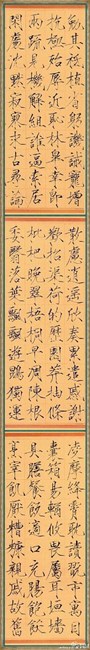 勉其祗植省躬譏誡寵增
抗極殆辱近恥林皋幸即
兩疏見機解組誰逼索居
閑處沉默寂寥求古尋論
散慮逍遙欣奏累遣慼謝
歡招渠荷的歷園莽抽條
枇杷晚翠梧桐早凋陳根
委翳落葉飄颻遊鵾獨運
凌摩絳霄耽讀翫市寓目
囊箱易輶攸畏屬耳垣牆
具膳餐飯適口充腸飽飫
亨宰飢厭糟糠親戚故舊